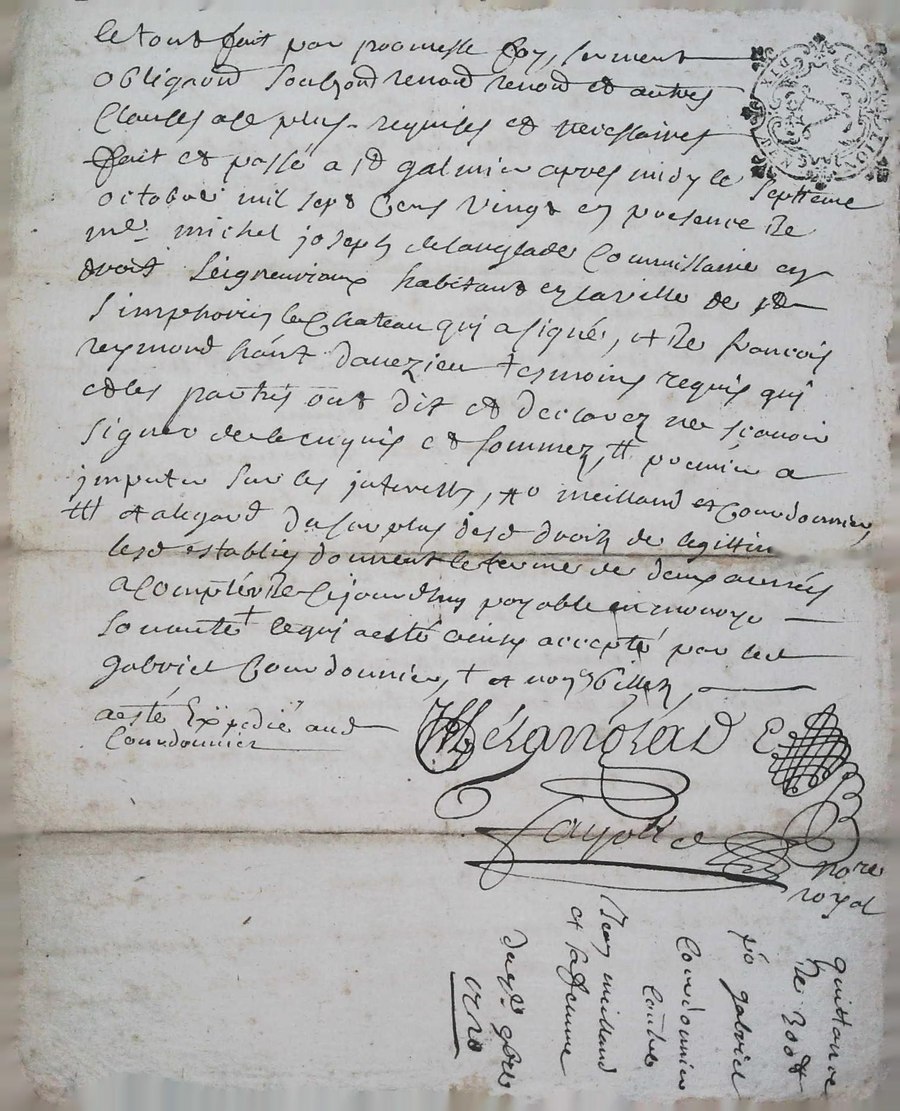 le tout fait par promesse foy, serment
obligeond soubzond renond renond et autres
Clauses a ce plus requises et necessaires
fait et passé a st galmier apres midy le septieme
octobre mil sept cens vingt en presence de
me michel joseph delanglade Commissaire en
droit seigneuriaux habitant en la ville de st
simphorien le Chateau qui a signé, et de francois
reymond hant davezieu tesmoins requis qui
et les parties ont dit et declarez ne scavoir
signer de ce enquis et sommez, ++ premier a
imputer sur les interestz, ++ o meilland et Courdonnier,
+++ et a legard du surplus desd droitz de legittime
lesd establies donnent le terme de deux années
a Compter de cejourdhuy payable en monoye
sonante + ce qui a esté ainsy accepté par led
gabriel Courdonnier, + et non
a esté Expedié aud
Courdonnier
Delanglade
royal
GENERALITE
quittance
de 300tt
po gabriel
Courdonnier
Contre
Jean meilland
et sa femme
du 7e 8bre
1720